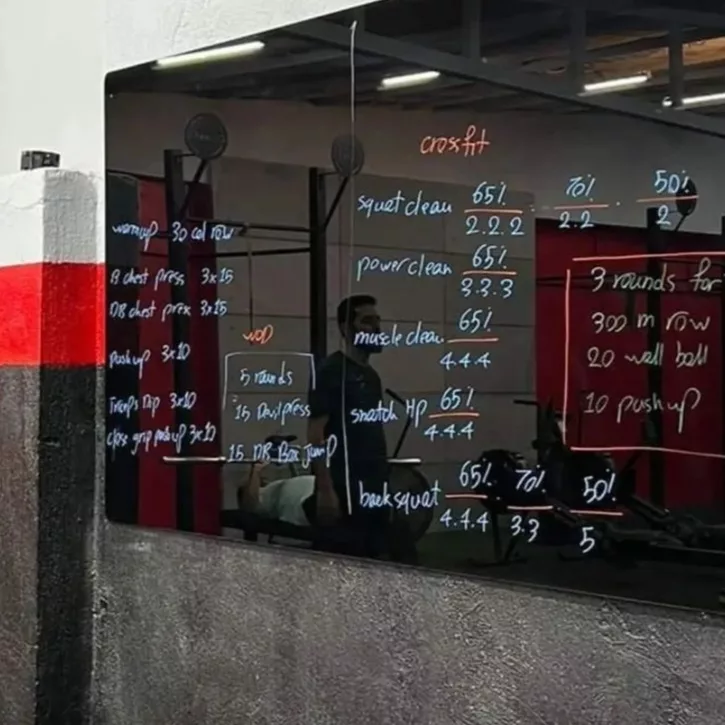 warmup 30 cal row
B chest press 3x15
DB chest press 3x15
pushup 3x10
Triceps Dip 3x10
close grip pushup 3x10
WOD
5 rounds
15 Devil press
15 DB Box Jump
crossfit
squat clean 65% 70% 50%
2.2.2 2.2 2
power clean 65%
3.3.3
muscle clean 65%
4.4.4
snatch HP 65%
4.4.4
back squat 65% 70% 50%
4.4.4 3.3 5
3 rounds for
300 m row
20 wall ball
10 pushup